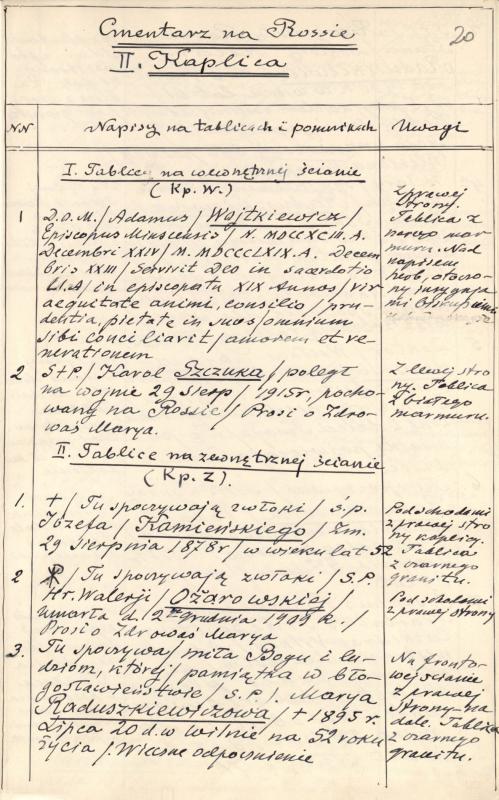 20
Cmentarz na Rossie
II. Kaplica
N.N
Napisy na tablicach i pomnikach
Uwagi
I. Tablice na wewnętrznej ścianie
(Kp. W.)
1
D.O.M. / Adamus / Wojtkiewicz /
Episcopus Minscensis / N. MDCCXCIII. A.
Decembri XXIV / M. MDCCCLXIX. A. Decem
bris XXIII / Servivit Deo in sacerdotio
in episcopatu XIX Annos / vir
aequitate animi, consilio / pru-
dentia, pietate in suos / omnium
sibi conciliavit / amorem et ve-
nerationem
z prawej
strony.
Tablica z
mar-
muru. Nad
napisem
herb, otoczo-
ny insygnja
mi
2
S+P. / Karol Szczuka / poległ
na wojnie 29 sierp / 1915r, pocho-
wany na Rossie / Prosi o Zdro-
waś Marya.
Z lewej stro
ny. Tablica
z białego
marmuru.
II. Tablice na zewnętrznej ścianie
(Kp. Z).
1.
+ / Tu spoczywają zwłoki / Ś.p.
Józefa / Kamieńskiego / Zm.
29 sierpnia 1878r / w wieku lat 52
Pod schodami
z prawej stro
ny kaplicy.
Tablica
z czarnego
granitu.
2
/ Tu spoczywają zwłoki / Ś.P.
Hr. Walerji / Ożarowskiej /
umarła d. 2 grudnia 1909 r. /
Prosi o Zdrowaś Marya
Pod schodami
z prawej strony
3.
Tu spoczywa / miła Bogu i lu-
dziom, której / pamiątka w bło-
gosławieństwie / Ś.P. /. Marya
Raduszkiewiczowa / + 1895 r.
Lipca 20 d. w Wilnie na 52 roku
życia / Wieczne odpocznienie
Na fronto-
wej ścianie
z prawej
strony na
dole. Tablica
z czarnego
granitu.